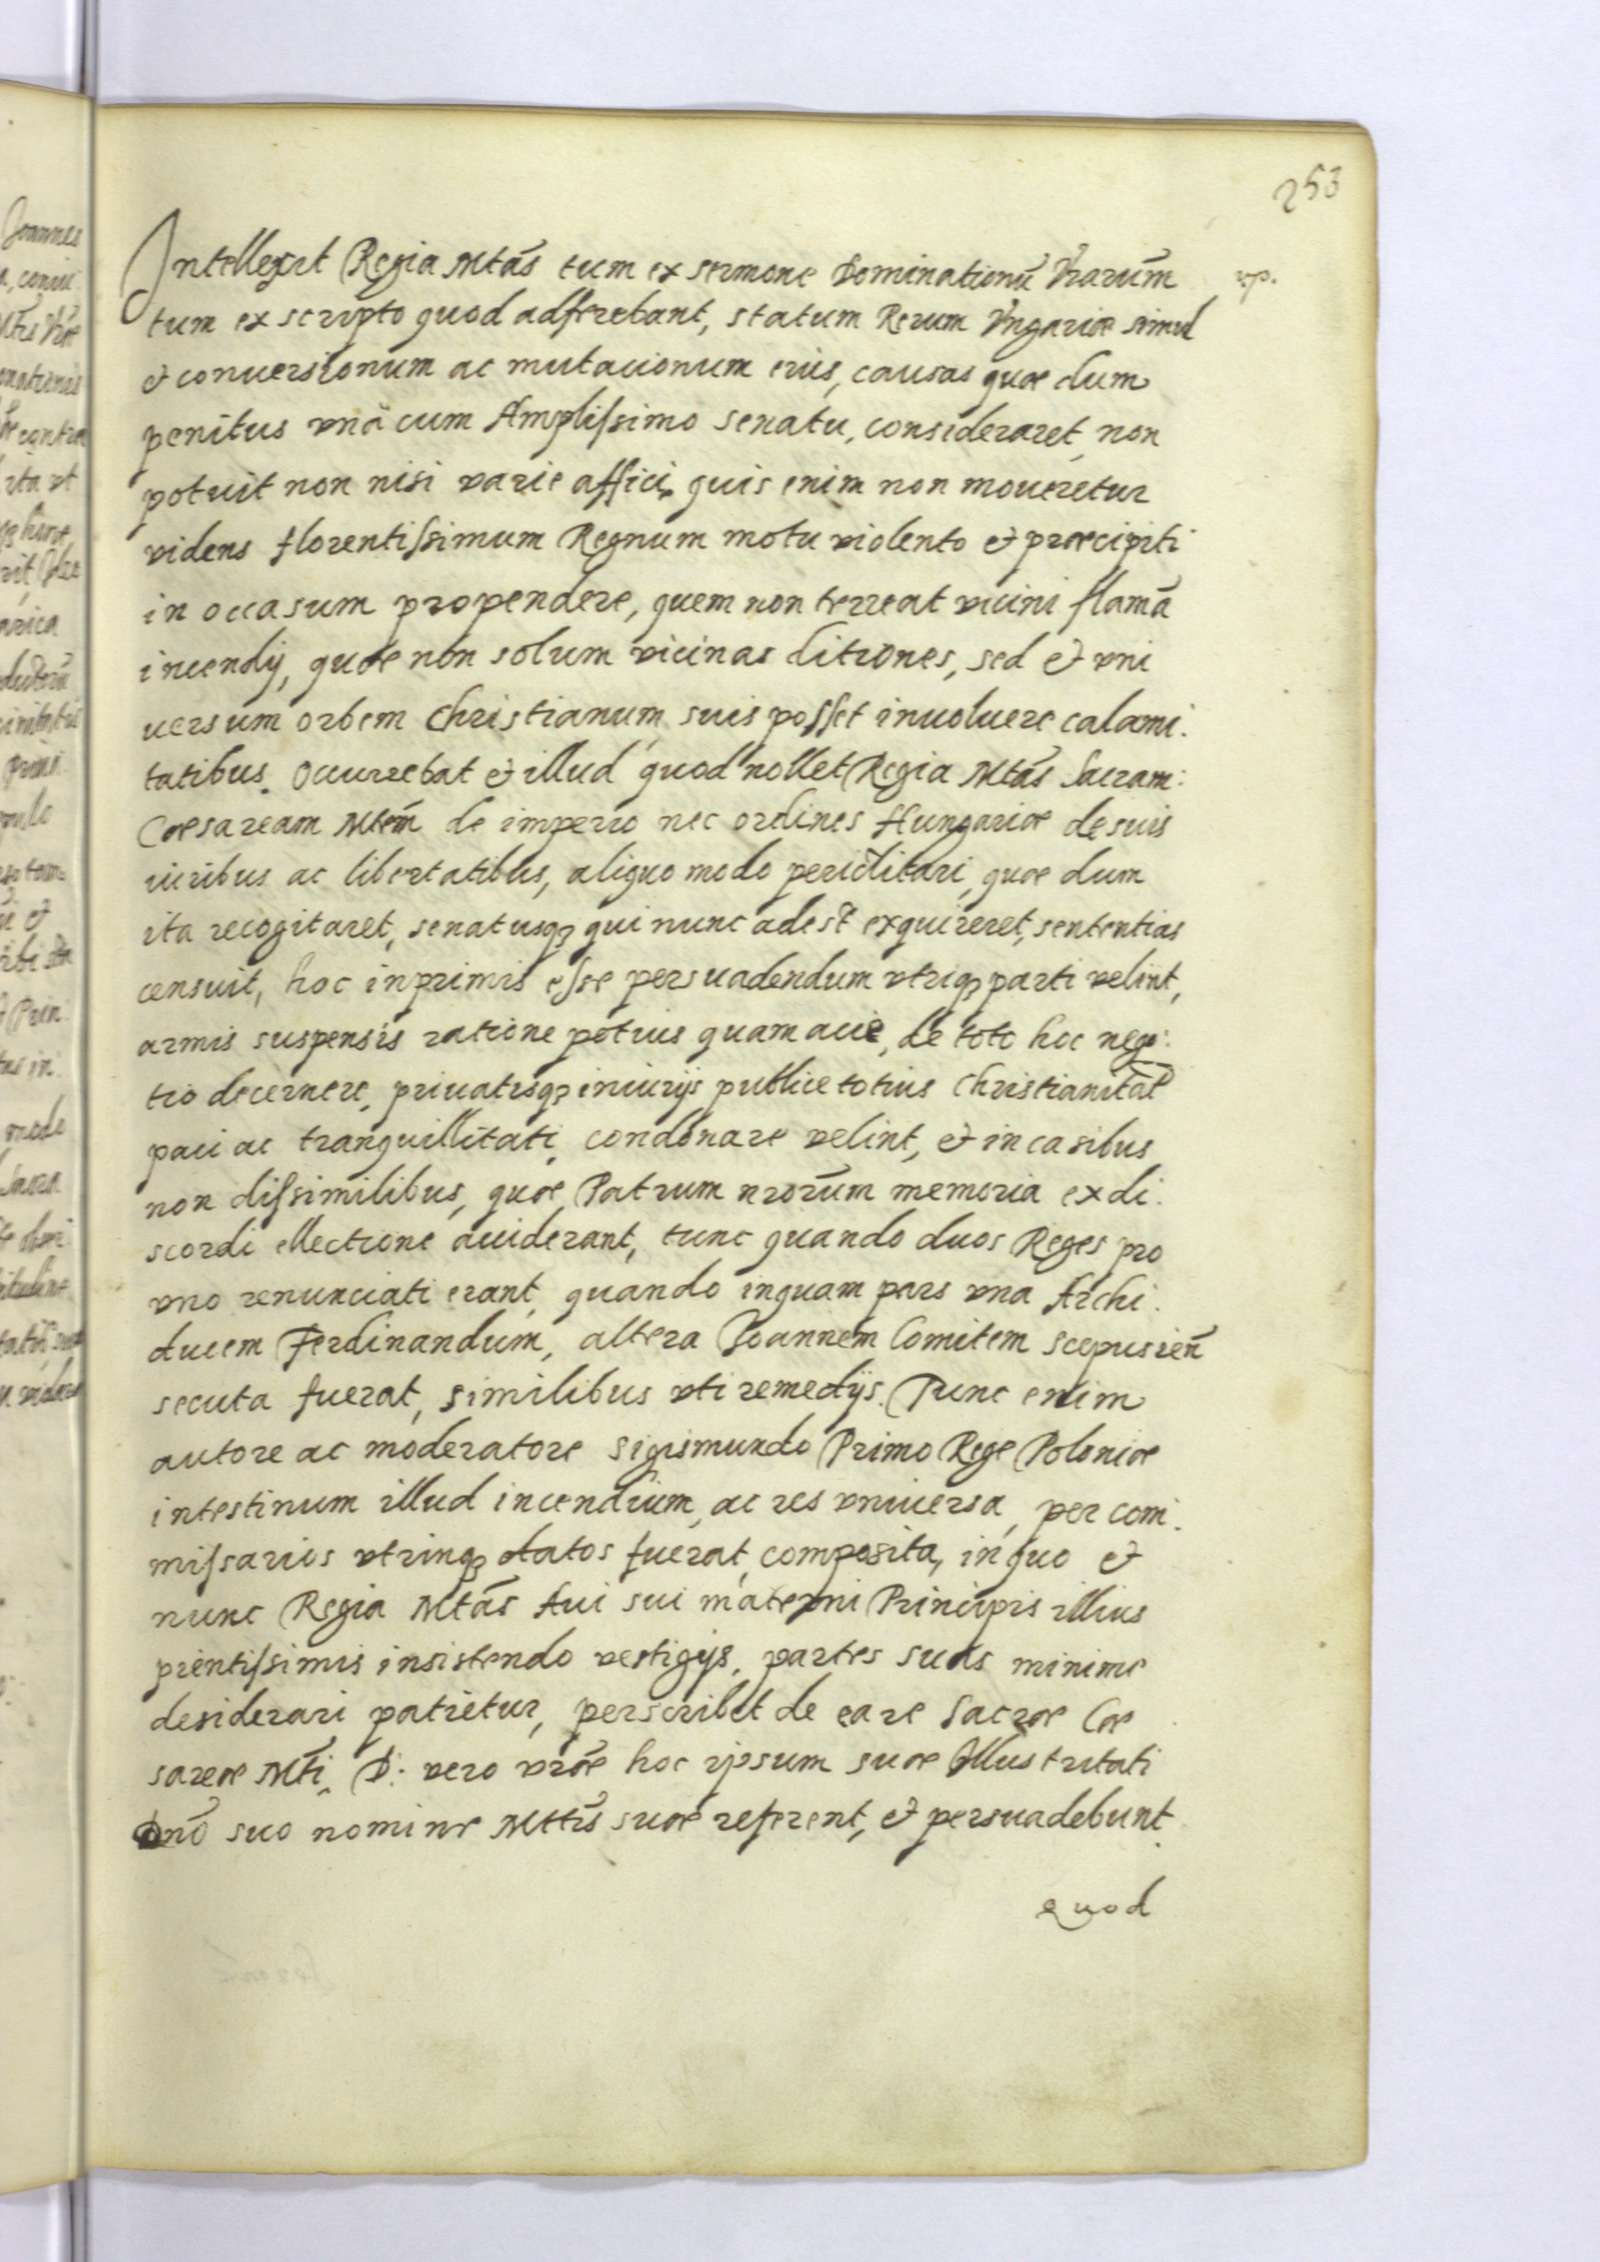 253
Intellexit Regia Mtãs tum ex sermone Dominationũ Vrarũm
tum ex scripto quod adferebant, statum Rerum Vngariæ simul
& conuersionum ac mutacionum eius, causas quæ dum
penitus vnà cum Amplissimo senatu, consideraret, non
potuit non nisi varie affici, quis enim non moueretur
videns florentissimum Regnum motu violento & præcipiti
in occasum propendere, quem non terreat vicini flamã
incendij, quæ non solum vicinas ditiones, sed & vni
uersum orbem Christianum, suis posset inuoluere calami.
tatibus. Occurrebat & illud quod nollet Regia Mtãs Sacram:
Cæsaream Mtẽm de imperio nec ordines Hungariæ de suis
iuribus ac libertatibus, aliquo modo periclitari, quæ dum
ita recogitaret, senatusq3 qui nunc adest exquireret, sententias
censuit, hoc inprimis esse persuadendum vtriq3 parti velint,
armis suspensis ratione potius quam acie, de toto hoc nego:
tio decernere, priuatisq3 iniurijs publice totius Christianitat
paci ac tranquillitati, condonare velint, & in casibus
non dissimilibus, quæ Patrum nrorũm memoria ex di:
scordi ellectione acciderant, tunc quando duos Reges pro
vno renunciati erant, quando inquam pars vna Archi.
ducem Ferdinandum, altera Joannem Comitem scepusieñ
secuta fuerat, similibus vti remedijs. Tunc enim
autore ac moderatore Sigismundo Primo Rege Poloniæ
intestinum illud incendium, ac res vniuersa, per com.
missarios vtrinq3 datos fuerat, composita, in quo &
nunc Regia Mtãs Aui sui materni Principis illius
pientissimis insistendo vestigijs, partes suas minime
desiderari patietur, perscribet de ea re Sacræ Cæ
sareæ Mti, D: vero vrẽ hoc ipsum suæ Illustritati
Dnõ suo nomine Mttis suæ referent, & persuadebunt.
Quod